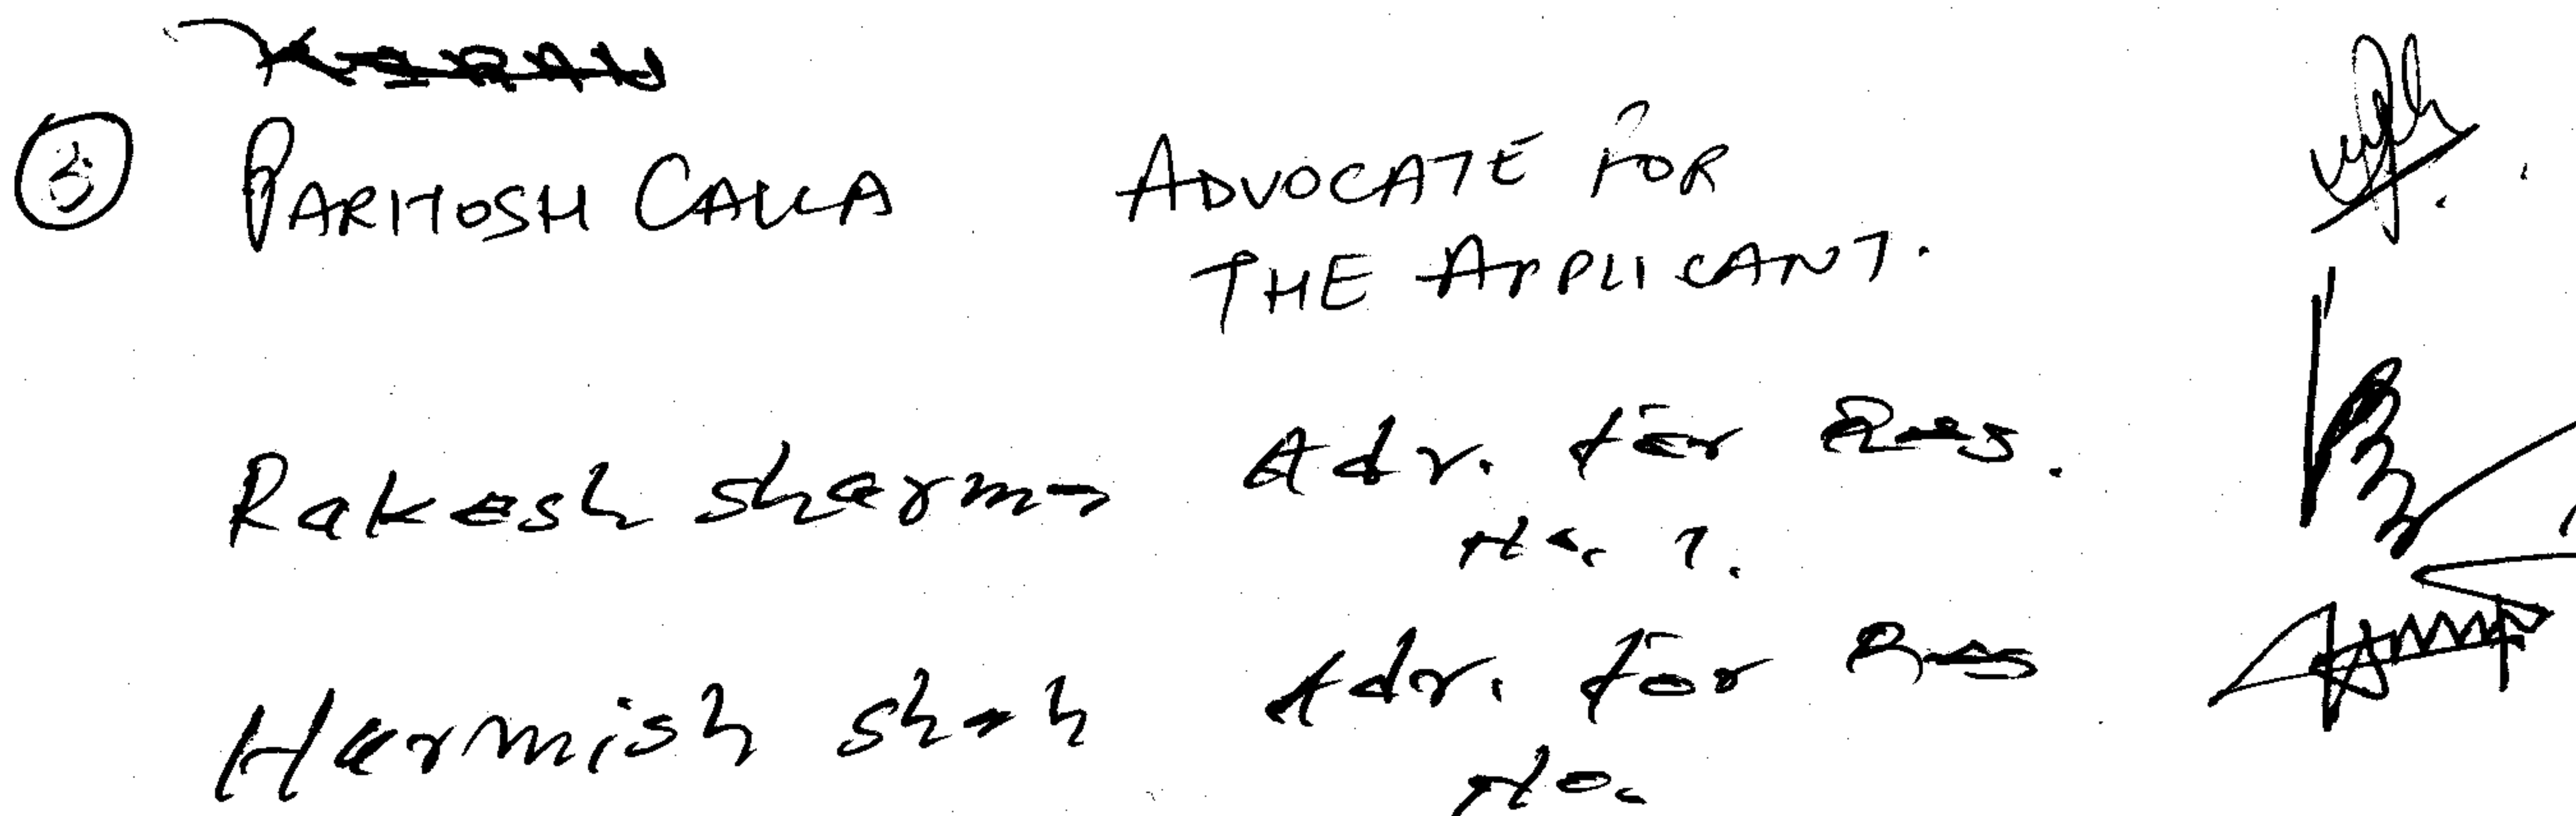 ③ PARITOSH CALLA ADVOCATE FOR
THE APPLICANT.
Rakesh Sharma Adv. for Res.
No. 7.
Harmish Shah Adv. for Res
No.